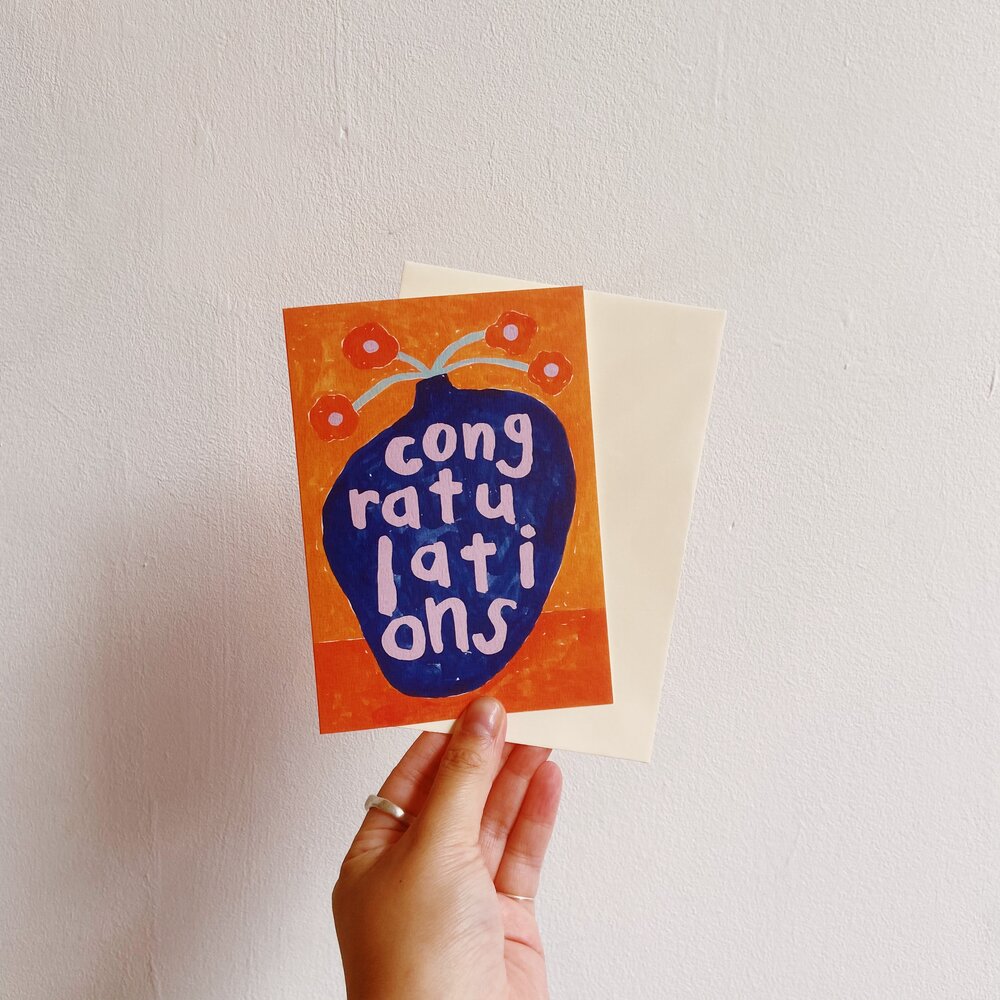 cong
ratu
lati
ons